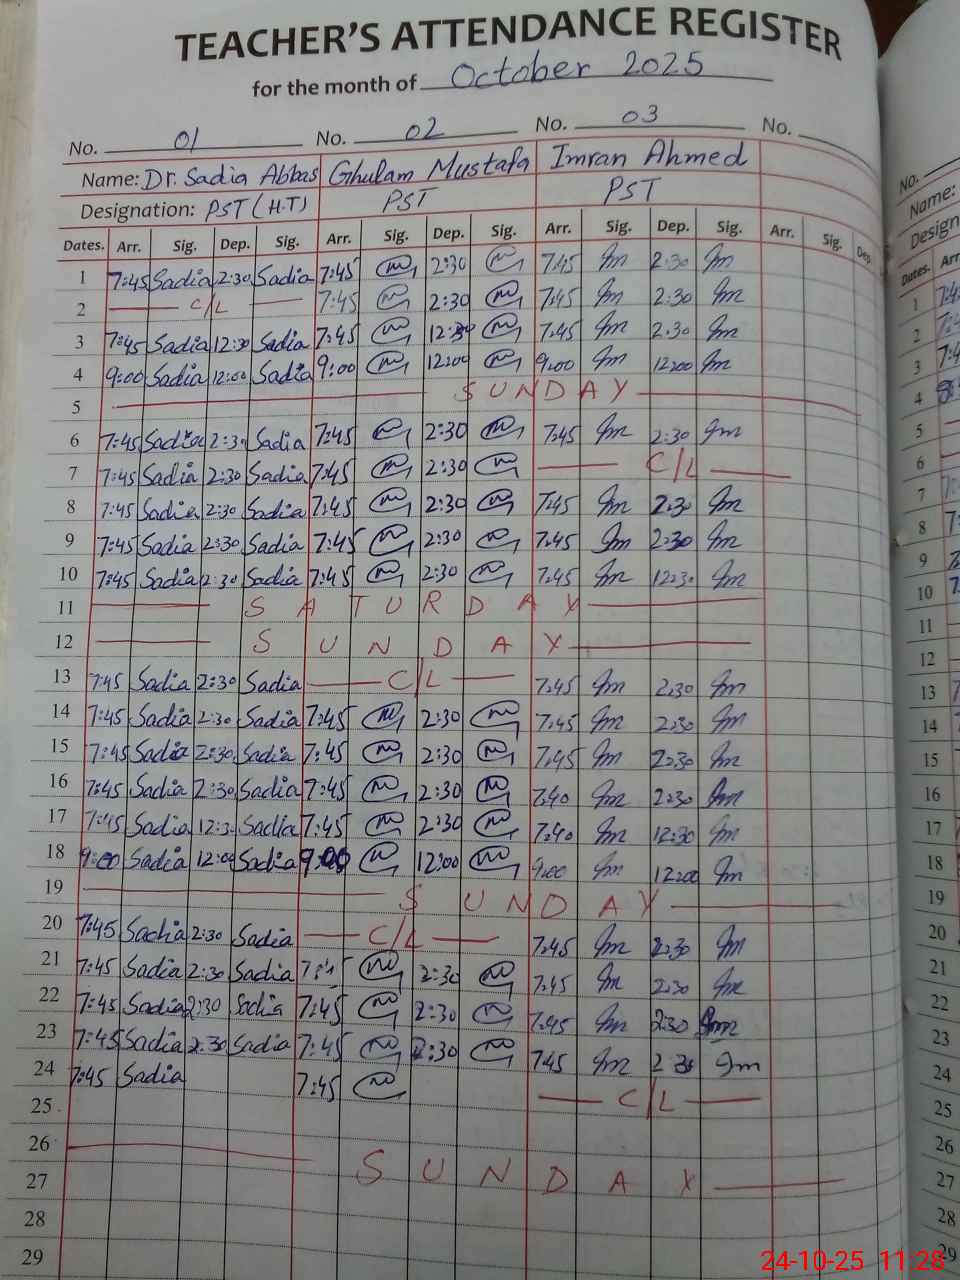 TEACHER'S ATTENDANCE REGISTER
for the month of October 2025
No. 01 No. 02 No. 03 No.
Name: Dr. Sadia Abbas Ghulam Mustafa Imran Ahmed
Designation: PST (H.T) PST PST
Dates. Arr. Sig. Dep. Sig. Arr. Sig. Dep. Sig. Arr. Sig. Dep. Sig. Arr. Sig. Dep.
1 7:45 Sadia 2:30 Sadia 7:45 2:30 7:45 2:30
2 C/L 7:45 2:30 7:45 2:30
3 7:45 Sadia 12:30 Sadia 7:45 12:30 7:45 2:30
4 9:00 Sadia 12:00 Sadia 9:00 12:00 9:00 12:00
5 SUNDAY
6 7:45 Sadia 2:30 Sadia 7:45 2:30 7:45 2:30
7 7:45 Sadia 2:30 Sadia 7:45 2:30 C/L
8 7:45 Sadia 2:30 Sadia 7:45 2:30 7:45 2:30
9 7:45 Sadia 2:30 Sadia 7:45 2:30 7:45 2:30
10 7:45 Sadia 2:30 Sadia 7:45 2:30 7:45 12:30
11 SATURDAY
12 SUNDAY
13 7:45 Sadia 2:30 Sadia C/L 7:45 2:30
14 7:45 Sadia 2:30 Sadia 7:45 2:30 7:45 2:30
15 7:45 Sadia 2:30 Sadia 7:45 2:30 7:45 2:30
16 7:45 Sadia 2:30 Sadia 7:45 2:30 7:40 2:30
17 7:45 Sadia 12:3 Sadia 7:45 2:30 7:40 12:30
18 9:00 Sadia 12:00 Sadia 9:00 12:00 9:00 12:00
19 SUNDAY
20 7:45 Sadia 2:30 Sadia C/L 7:45 2:30
21 7:45 Sadia 2:30 Sadia 2:30 7:45 2:30
22 7:45 Sadia 2:30 Sadia 7:45 2:30 7:45 2:30
23 7:45 Sadia 2:30 Sadia 7:45 2:30 7:45 2:30
24 7:45 Sadia 7:45 C/L
25
26 SUNDAY
27
28
29
24-10-25 11:28